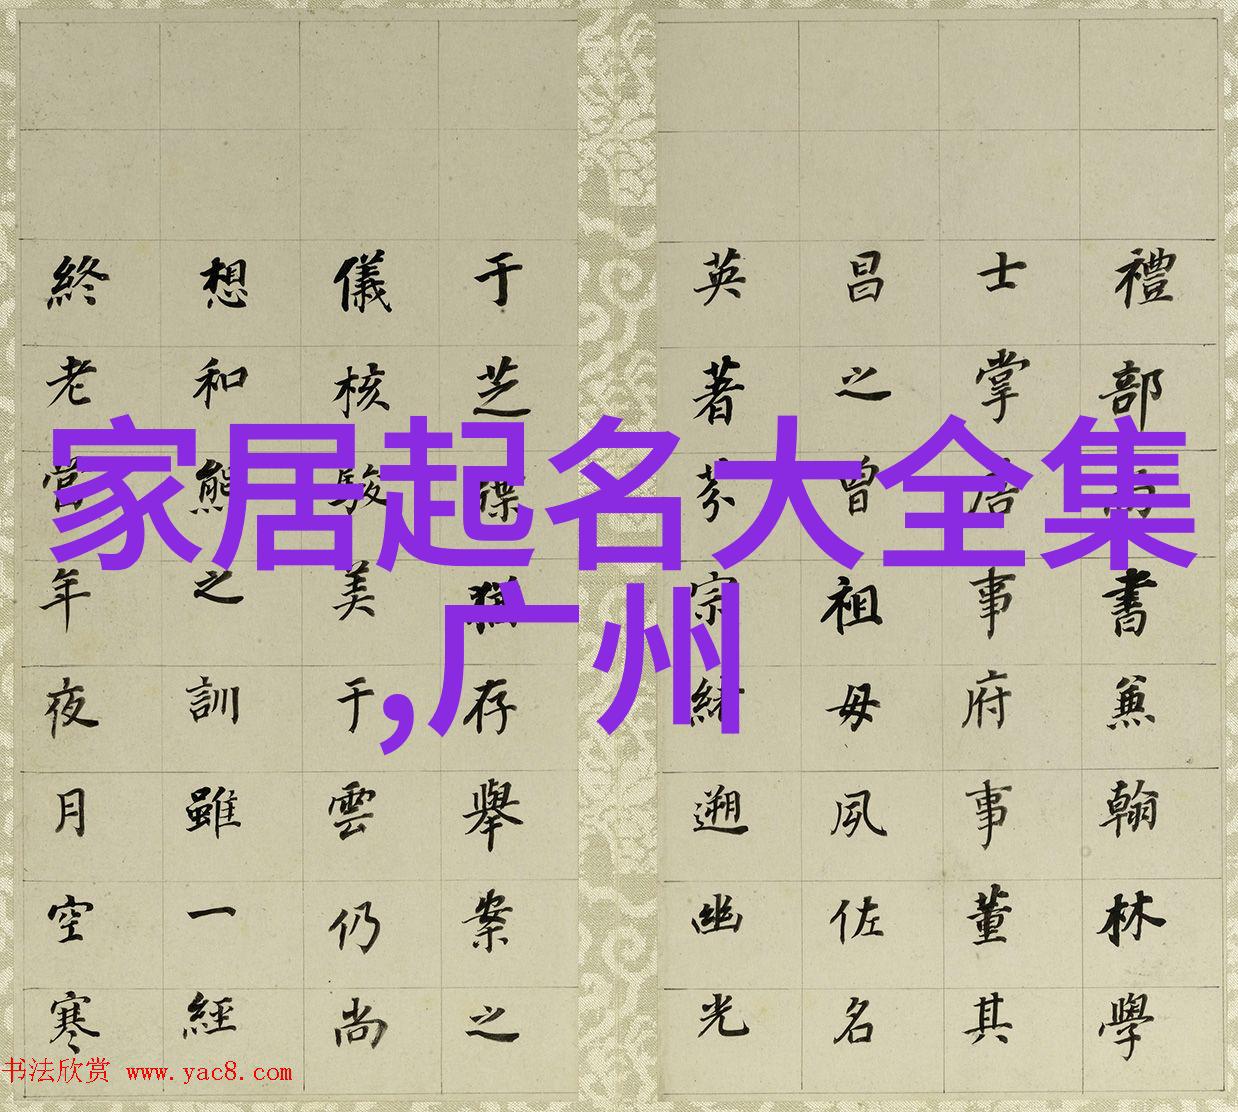 家居起名大全集
,广州
禮部尚書兼翰林學
士掌詹事府事董其
昌之曾祖母夙佐名
英著芬宗緒遡幽光
于芝猶存舉案之
儀核駿美于雲仍尚
想和熊之訓雖一經
終老當年夜月空寒
书法欣赏 www.yac8.com